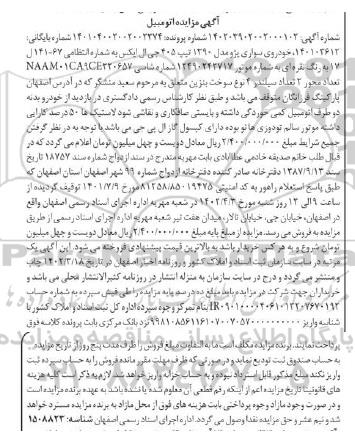 آگهی مزایده اتومبیل
شماره آگهی: ۱۴۰۲۰۳۹۰۲۰۰۲۰۰۰۱۰۲ شماره پرونده: ۱۴۰۱۰۴۰۰۲۰۰۲۰۰۲۳۷۴ شماره بایگانی:
۱۴۰۱۰۲۶۱۲، خودروی سواری پژو مدل ۱۳۹۰ تیپ ۴۰۵ جی ال ایکس به شماره انتظامی ۶۷-۱۴۱ ل
۱۷ به رنگ نقره ای به شماره موتور ۱۲۴۹۰۲۴۲۷۱۷ شماره شاسی NAAM۰۱CA۹CE۲۲۰۶۵۷
تعداد محور ۲ تعداد سیلندر ۴ نوع سوخت بنزین متعلق به مرحوم سعید متشکر که در آدرس اصفهان
پارکینگ فرزانگان متوقف می باشد و طبق نظر کارشناس رسمی دادگستری در بازدید از خودرو بدنه
دو طرف اتومبیل کمی خوردگی داشته و بایستی صافکاری و نقاشی شود لاستیک ها ۵۰ درصد کارایی
داشته موتور سالم تودوزی ها نو بوده دارای کپسول گاز ال پی جی می باشد با توجه به در نظر گرفتن
جمیع شرایط مبلغ ۲/۴۰۰/۰۰۰/۰۰۰ ریال معادل دویست و چهل میلیون تومان اعلام می گردد که در
قبال طلب خانم صدیقه خادمی عطاآبادی بابت مهریه مندرج در سند ازدواج شماره سند ۱۸۷۵۷ تاریخ
سند ۱۳۸۷/۰۹/۱۳ دفترخانه صادر کننده دفترخانه ازدواج شماره ۹۹ شهر اصفهان استان اصفهان که
طبق پاسخ استعلام راهور به کد امنیتی ۸۱۲۵۸/۸۵۰۱۹۴۷۵ مورخ ۱۴۰۱/۷/۹ توقیف گردیده از
ساعت ۹ الی ۱۲ روز شنبه مورخ ۱۴۰۲/۳/۲ در شعبه مهریه اداره اجرای اسناد رسمی اصفهان واقع
در اصفهان، خیابان جی، خیابان تالار، میدان هفت تیر شعبه مهریه اداره اجرای اسناد رسمی از طریق
مزایده به فروش می رسد. مزایده از مبلغ پایه مبلغ ۲/۴۰۰/۰۰۰/۰۰۰ ریال معادل دویست و چهل میلیون
تومان شروع و به هر کس خریدار باشد به بالاترین قیمت پیشنهادی فروخته می شود. این آگهی یک
مرتبه در سایت سازمان ثبت اسناد و املاک کشور و روزنامه اخبار اصفهان در تاریخ ۱۴۰۲/۳/۱۸ چاپ
و منتشر می گردد و درج در سایت سازمان به منزله انتشار در روزنامه کثیرالانتشار محلی می باشد و
خریداران جهت شرکت در مزایده باید مبلغ ده درصد پایه مزایده را طی فیش سپرده به شماره حساب
IR۰۹۰۱۰۰۰۰۴۰۶۱۰۱۳۲۰۷۶۷۰۱۹۲ بنام تمرکز وجوه سپرده اداره کل ثبت اسناد و املاک کشور با
شناسه واریز ۹۹۸۱۰۸۵۶۱۱۶۱۰۷۰۷۰۵۷۰۰۰۰۰۰۰۰۰۰ نزد بانک مرکزی بابت پرونده کلاسه فوق
پرداخت نمایند. برنده مزایده مکلف است ما به التفاوت مبلغ فروش را ظرف مدت پنج روز از تاریخ مزایده
به حساب صندوق ثبت تودیع نماید و در صورتی که ظرف مهلت مقرر مانده فروش را به حساب سپرده ثبت
واریز نکند مبلغ مذکور قابل استرداد نبوده و به حساب خزانه واریز خواهد شد. لازم به ذکر است کلیه هزینه
های قانونی تا تاریخ مزایده اعم از اینکه رقم قطعی آن معلوم شده یا نشده باشد به عهده برنده مزایده است
و در صورت وجود مازاد وجوه پرداختی بابت هزینه های فوق از محل مازاد به برنده مزایده مسترد خواهد
شد و نیم عشر و حق مزایده نقدا وصول می گردد. اداره اجرای اسناد رسمی اصفهان شناسه: ۱۵۰۸۸۲۳